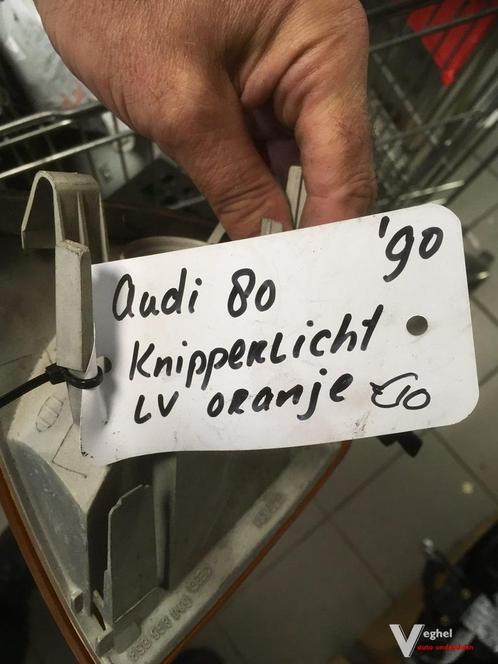 '90
Audi 80
Knipperlicht
LV oranje €10
Veghel
auto onderdelen